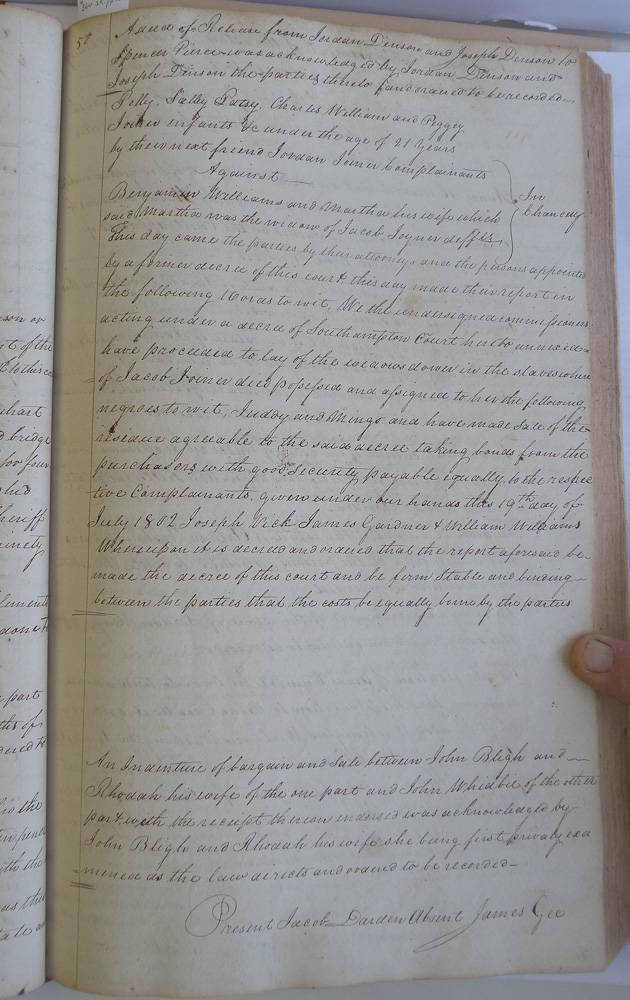 50
A deed of Release from Jordan Denson and Joseph Denson to
Spencer Pierce was acknowledged by Jordan Denson and
Joseph Denson the parties thereto and ordered to be recorded
Polly, Salley Patsy, Charles William and Peggy
Joiner infants &c under the age of 21 years
by their next friend Jordan Joiner Complainants
Against
In
Chancery
Benjamin Williams and Martha his wife which
said Martha was the widow of Jacob Joyner defts
This day came the parties by their attorneys and the persons appointed
by a former decree of this court, this day made their report in
the following words to wit, We the undersigned commissioners
acting under a decree of Southampton Court hereto annexed
have proceeded to lay of the widows dower in the slaves whereof
of Jacob Joiner died possessed and assigned to her the following
negroes to wit, Juddy and Mingo and have made sale of the
residue agreable to the said decree taking bonds from the
purchasers with good Security payable equally to the respec
tive Complainants, given under our hands this 19th day of
July 1802 Joseph Vick James Gardner & William Williams
Whereupon it is decreed and ordered that the report aforesaid be
made the decree of this court and be firm stable and binding
between the parties that the costs be equally borne by the parties
An Indenture of bargain and Sale between John Bligh and
Rhodah his wife of the one part and John Whidbie of the other
part with the receipt thereon indorsed was acknowledged by
John Bligh and Rhodah his wife she being first privaly exa
mined as the law directs and ordered to be recorded
Present Jacob Darden Absent James Gee
son or
t of the
hart
d bridge
for four
heriff
ninety
done &
part
dered &
is the
th the
as the